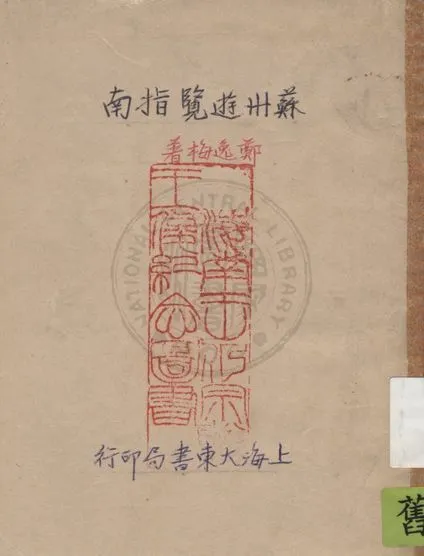 蘇州遊覽指南
鄭逸梅著
NATIONAL CENTRAL LIBRARY
上海大東書局印行
舊